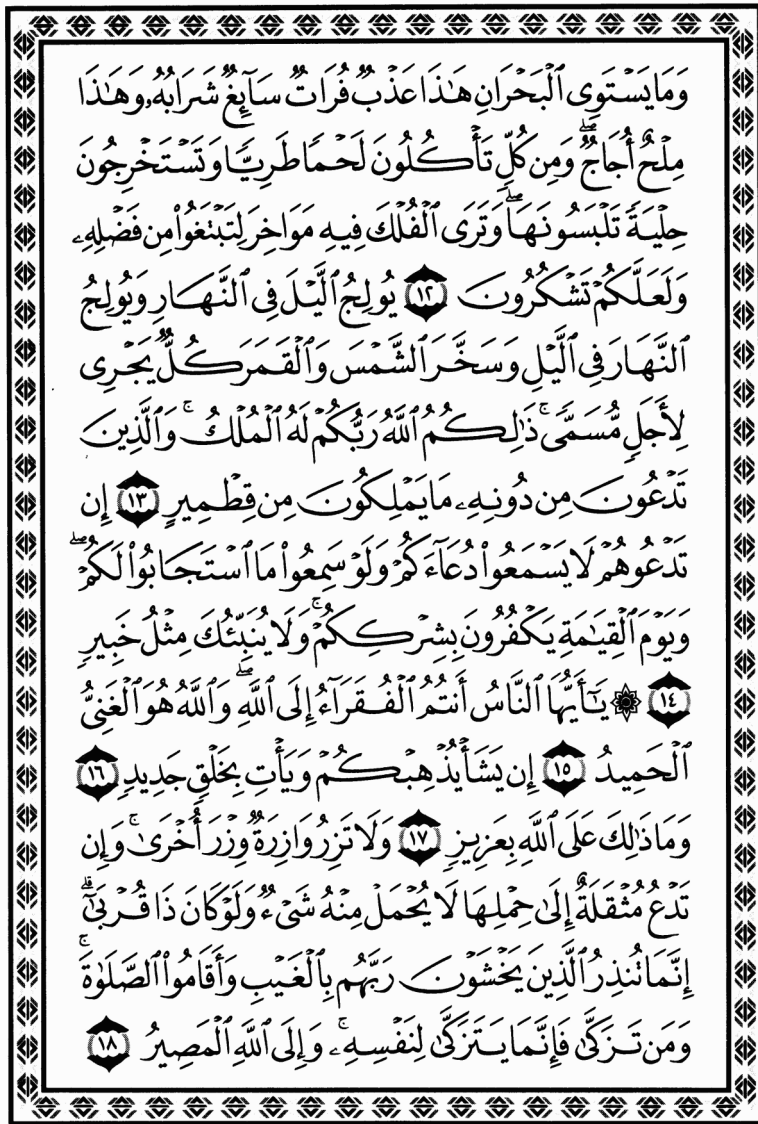 وَمَا يَسۡتَوِي ٱلۡبَحۡرَانِ هَٰذَا عَذۡبٞ فُرَاتٞ سَآئِغٞ شَرَابُهُۥ وَهَٰذَا
مِلۡحٌ أُجَاجٞۖ وَمِن كُلّٖ تَأۡكُلُونَ لَحۡمٗا طَرِيّٗا وَتَسۡتَخۡرِجُونَ
حِلۡيَةٗ تَلۡبَسُونَهَاۖ وَتَرَى ٱلۡفُلۡكَ فِيهِ مَوَاخِرَ لِتَبۡتَغُواْ مِن فَضۡلِهِۦ
وَلَعَلَّكُمۡ تَشۡكُرُونَ ١٢ يُولِجُ ٱلَّيۡلَ فِي ٱلنَّهَارِ وَيُولِجُ
ٱلنَّهَارَ فِي ٱلَّيۡلِ وَسَخَّرَ ٱلشَّمۡسَ وَٱلۡقَمَرَ كُلّٞ يَجۡرِي
لِأَجَلٖ مُّسَمّٗىۚ ذَٰلِكُمُ ٱللَّهُ رَبُّكُمۡ لَهُ ٱلۡمُلۡكُۚ وَٱلَّذِينَ
تَدۡعُونَ مِن دُونِهِۦ مَا يَمۡلِكُونَ مِن قِطۡمِيرٍ ١٣ إِن
تَدۡعُوهُمۡ لَا يَسۡمَعُواْ دُعَآءَكُمۡ وَلَوۡ سَمِعُواْ مَا ٱسۡتَجَابُواْ لَكُمۡۖ
وَيَوۡمَ ٱلۡقِيَٰمَةِ يَكۡفُرُونَ بِشِرۡكِكُمۡۚ وَلَا يُنَبِّئُكَ مِثۡلُ خَبِيرٖ
١٤ ۞ يَٰٓأَيُّهَا ٱلنَّاسُ أَنتُمُ ٱلۡفُقَرَآءُ إِلَى ٱللَّهِۖ وَٱللَّهُ هُوَ ٱلۡغَنِيُّ
ٱلۡحَمِيدُ ١٥ إِن يَشَأۡ يُذۡهِبۡكُمۡ وَيَأۡتِ بِخَلۡقٖ جَدِيدٖ ١٦
وَمَا ذَٰلِكَ عَلَى ٱللَّهِ بِعَزِيزٖ ١٧ وَلَا تَزِرُ وَازِرَةٞ وِزۡرَ أُخۡرَىٰۚ وَإِن
تَدۡعُ مُثۡقَلَةٌ إِلَىٰ حِمۡلِهَا لَا يُحۡمَلۡ مِنۡهُ شَيۡءٞ وَلَوۡ كَانَ ذَا قُرۡبَىٰٓۗ
إِنَّمَا تُنذِرُ ٱلَّذِينَ يَخۡشَوۡنَ رَبَّهُم بِٱلۡغَيۡبِ وَأَقَامُواْ ٱلصَّلَوٰةَۚ
وَمَن تَزَكَّىٰ فَإِنَّمَا يَتَزَكَّىٰ لِنَفۡسِهِۦۚ وَإِلَى ٱللَّهِ ٱلۡمَصِيرُ ١٨